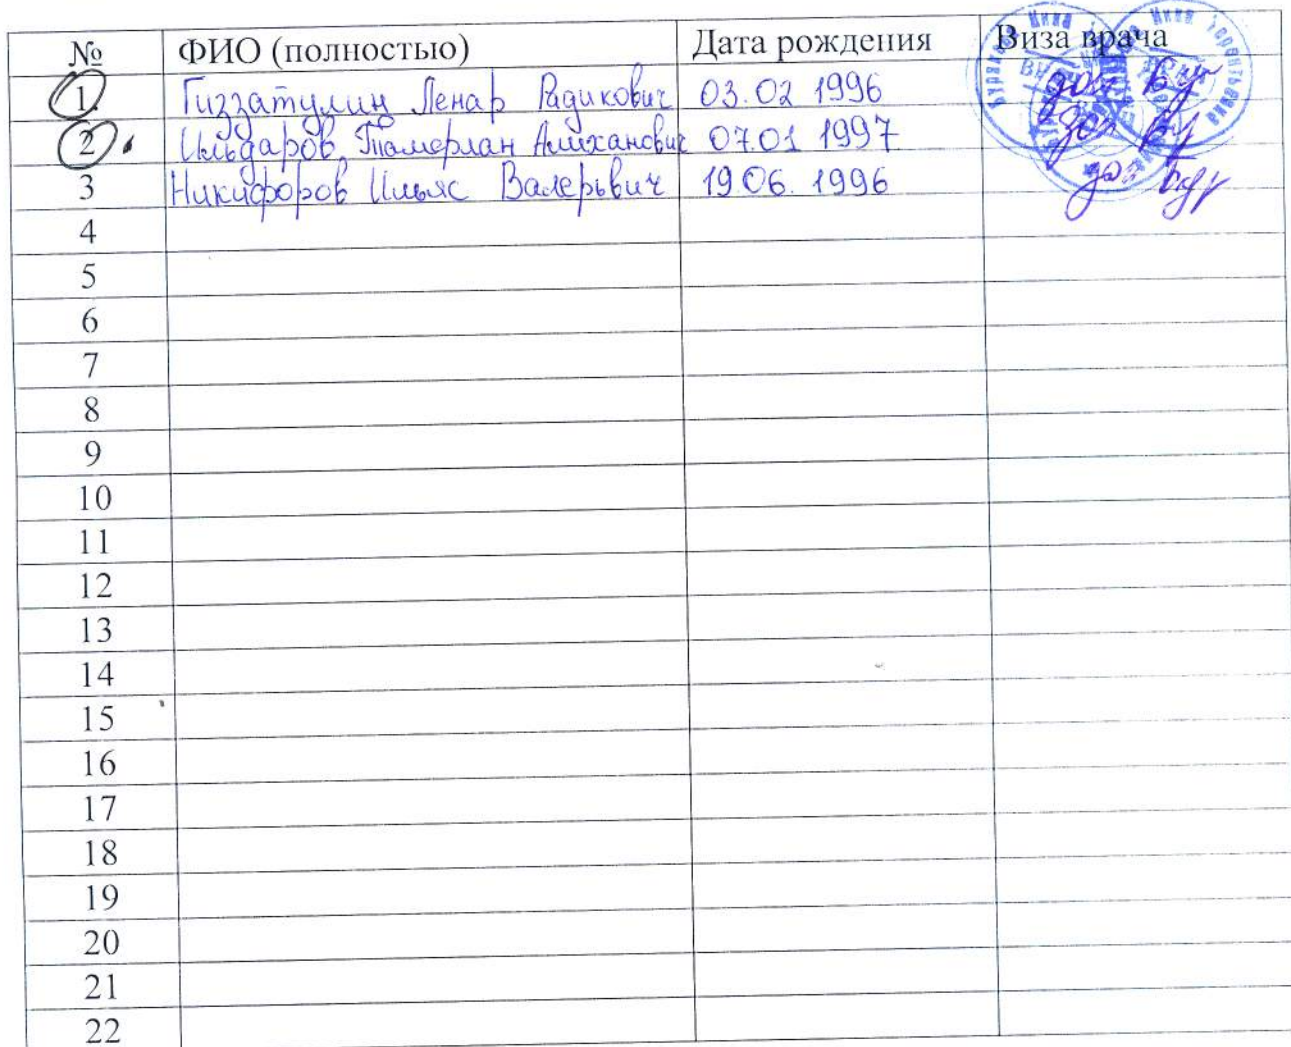 № ФИО (полностью) Дата рождения Виза врача
1. Гиззатулин Ленар Радикович 03.02 1996
2. Ильдаров Тамерлан Алиханович 07.01 1997
3 Никифоров Ильяс Валерьвич 19 06. 1996
4
5
6
7
8
9
10
11
12
13
14
15
16
17
18
19
20
21
22